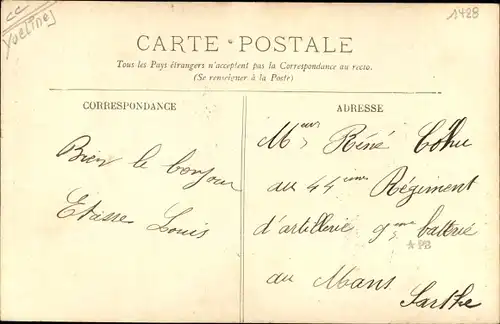 cc
Yvelines
1428
CARTE POSTALE
Tous les Pays étrangers n'acceptent pas la Correspondance au recto.
(Se renseigner à la Poste)
CORRESPONDANCE
Bien le bonjour
Etasse Louis
ADRESSE
Mr Réné Cohu
au 44ème Régiment
d'artillerie 9me batterie
au Mans
Sarthe